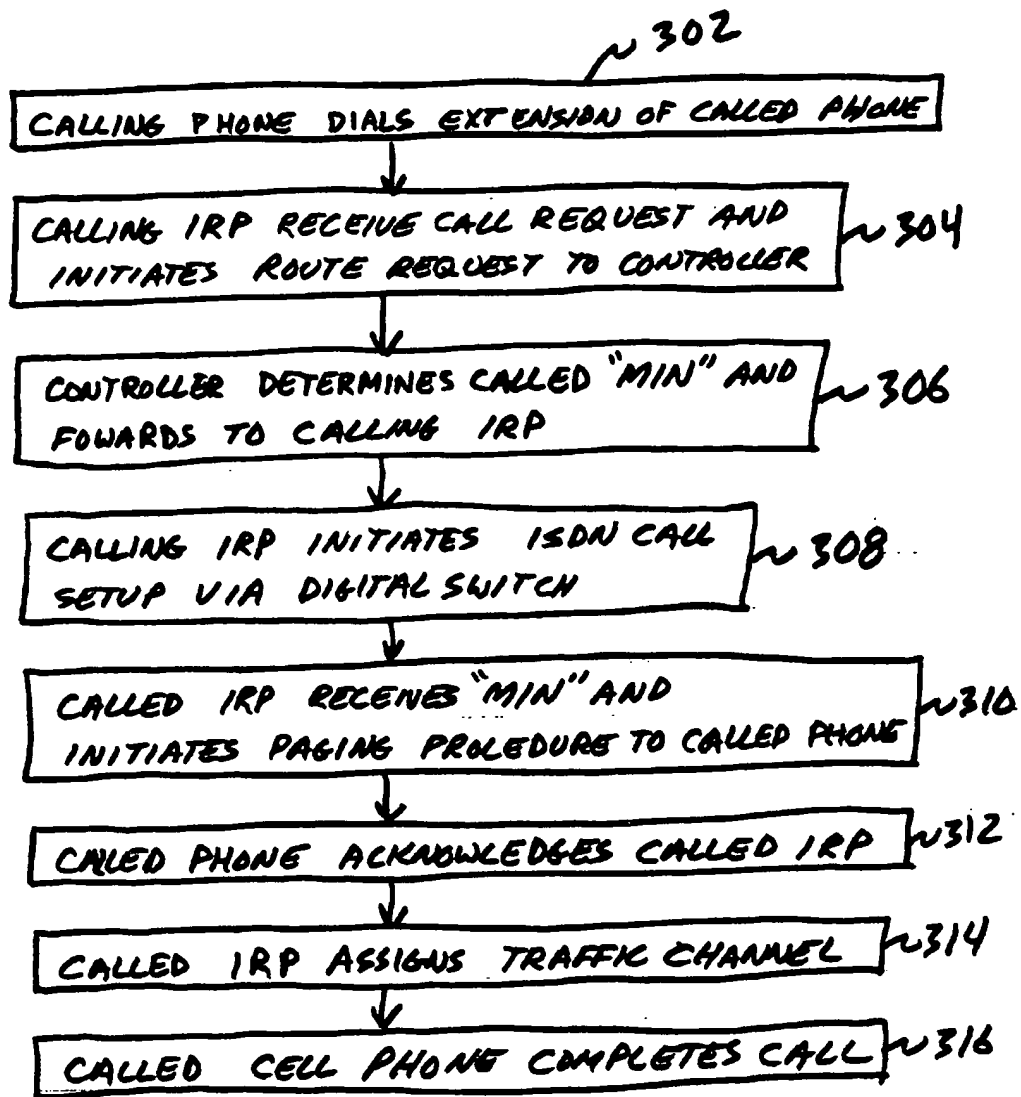 302
CALLING PHONE DIALS EXTENSION OF CALLED PHONE
CALLING IRP RECEIVE CALL REQUEST AND
INITIATES ROUTE REQUEST TO CONTROLLER
304
CONTROLLER DETERMINES CALLED "MIN" AND
FOWARDS TO CALLING IRP
306
CALLING IRP INITIATES ISDN CALL
SETUP VIA DIGITAL SWITCH
308
CALLED IRP RECEIVES "MIN" AND
INITIATES PAGING PROCEDURE TO CALLED PHONE
310
CALLED PHONE ACKNOWLEDGES CALLED IRP
312
CALLED IRP ASSIGNS TRAFFIC CHANNEL
314
CALLED CELL PHONE COMPLETES CALL
316